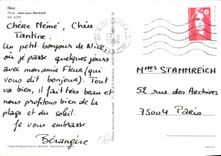 Nice
Chère Mémé, Chère
Tantine.
Un petit bonjour de Nice
où je passe quelques jours
avec mon amie Fleur (qui
vous dit bonjour). Tout
va bien, il fait très beau et
nous profitons bien de la
plage et du soleil.
Je vous embrasse
Bérangère
Mmes STAMMREICH
52 rue des Archives
75004 Paris